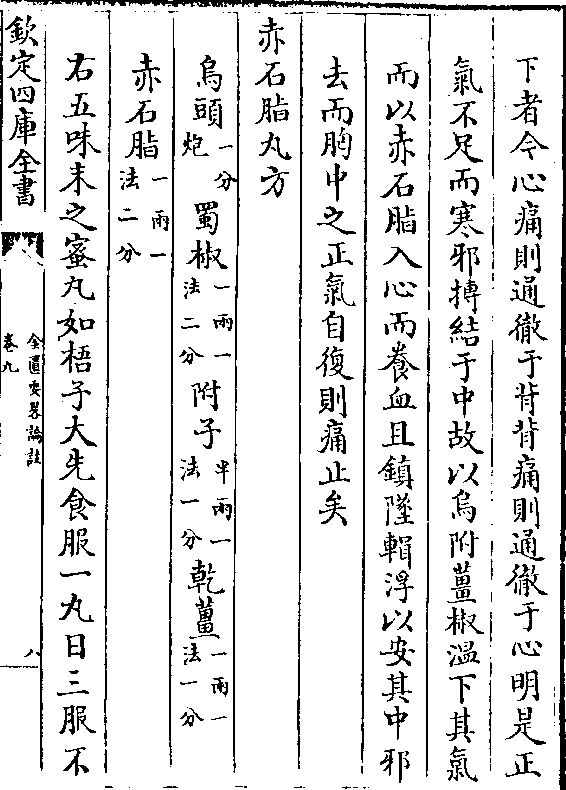 下者今心痛則通徹于背背痛則通徹于心明是正
氣不足而寒邪搏結于中故以烏附薑椒溫下其氣
而以赤石脂入心而養血且鎮墜輯浮以安其中邪
去而胸中之正氣自復則痛止矣
赤石脂丸方
烏頭一分炮 蜀椒一兩一法二分 附子半兩一法一分 乾薑一兩一法一分
赤石脂一兩一法二分
右五味末之蜜丸如梧子大先食服一丸日三服不
欽定四庫全書 金匱要畧論註 卷九 八